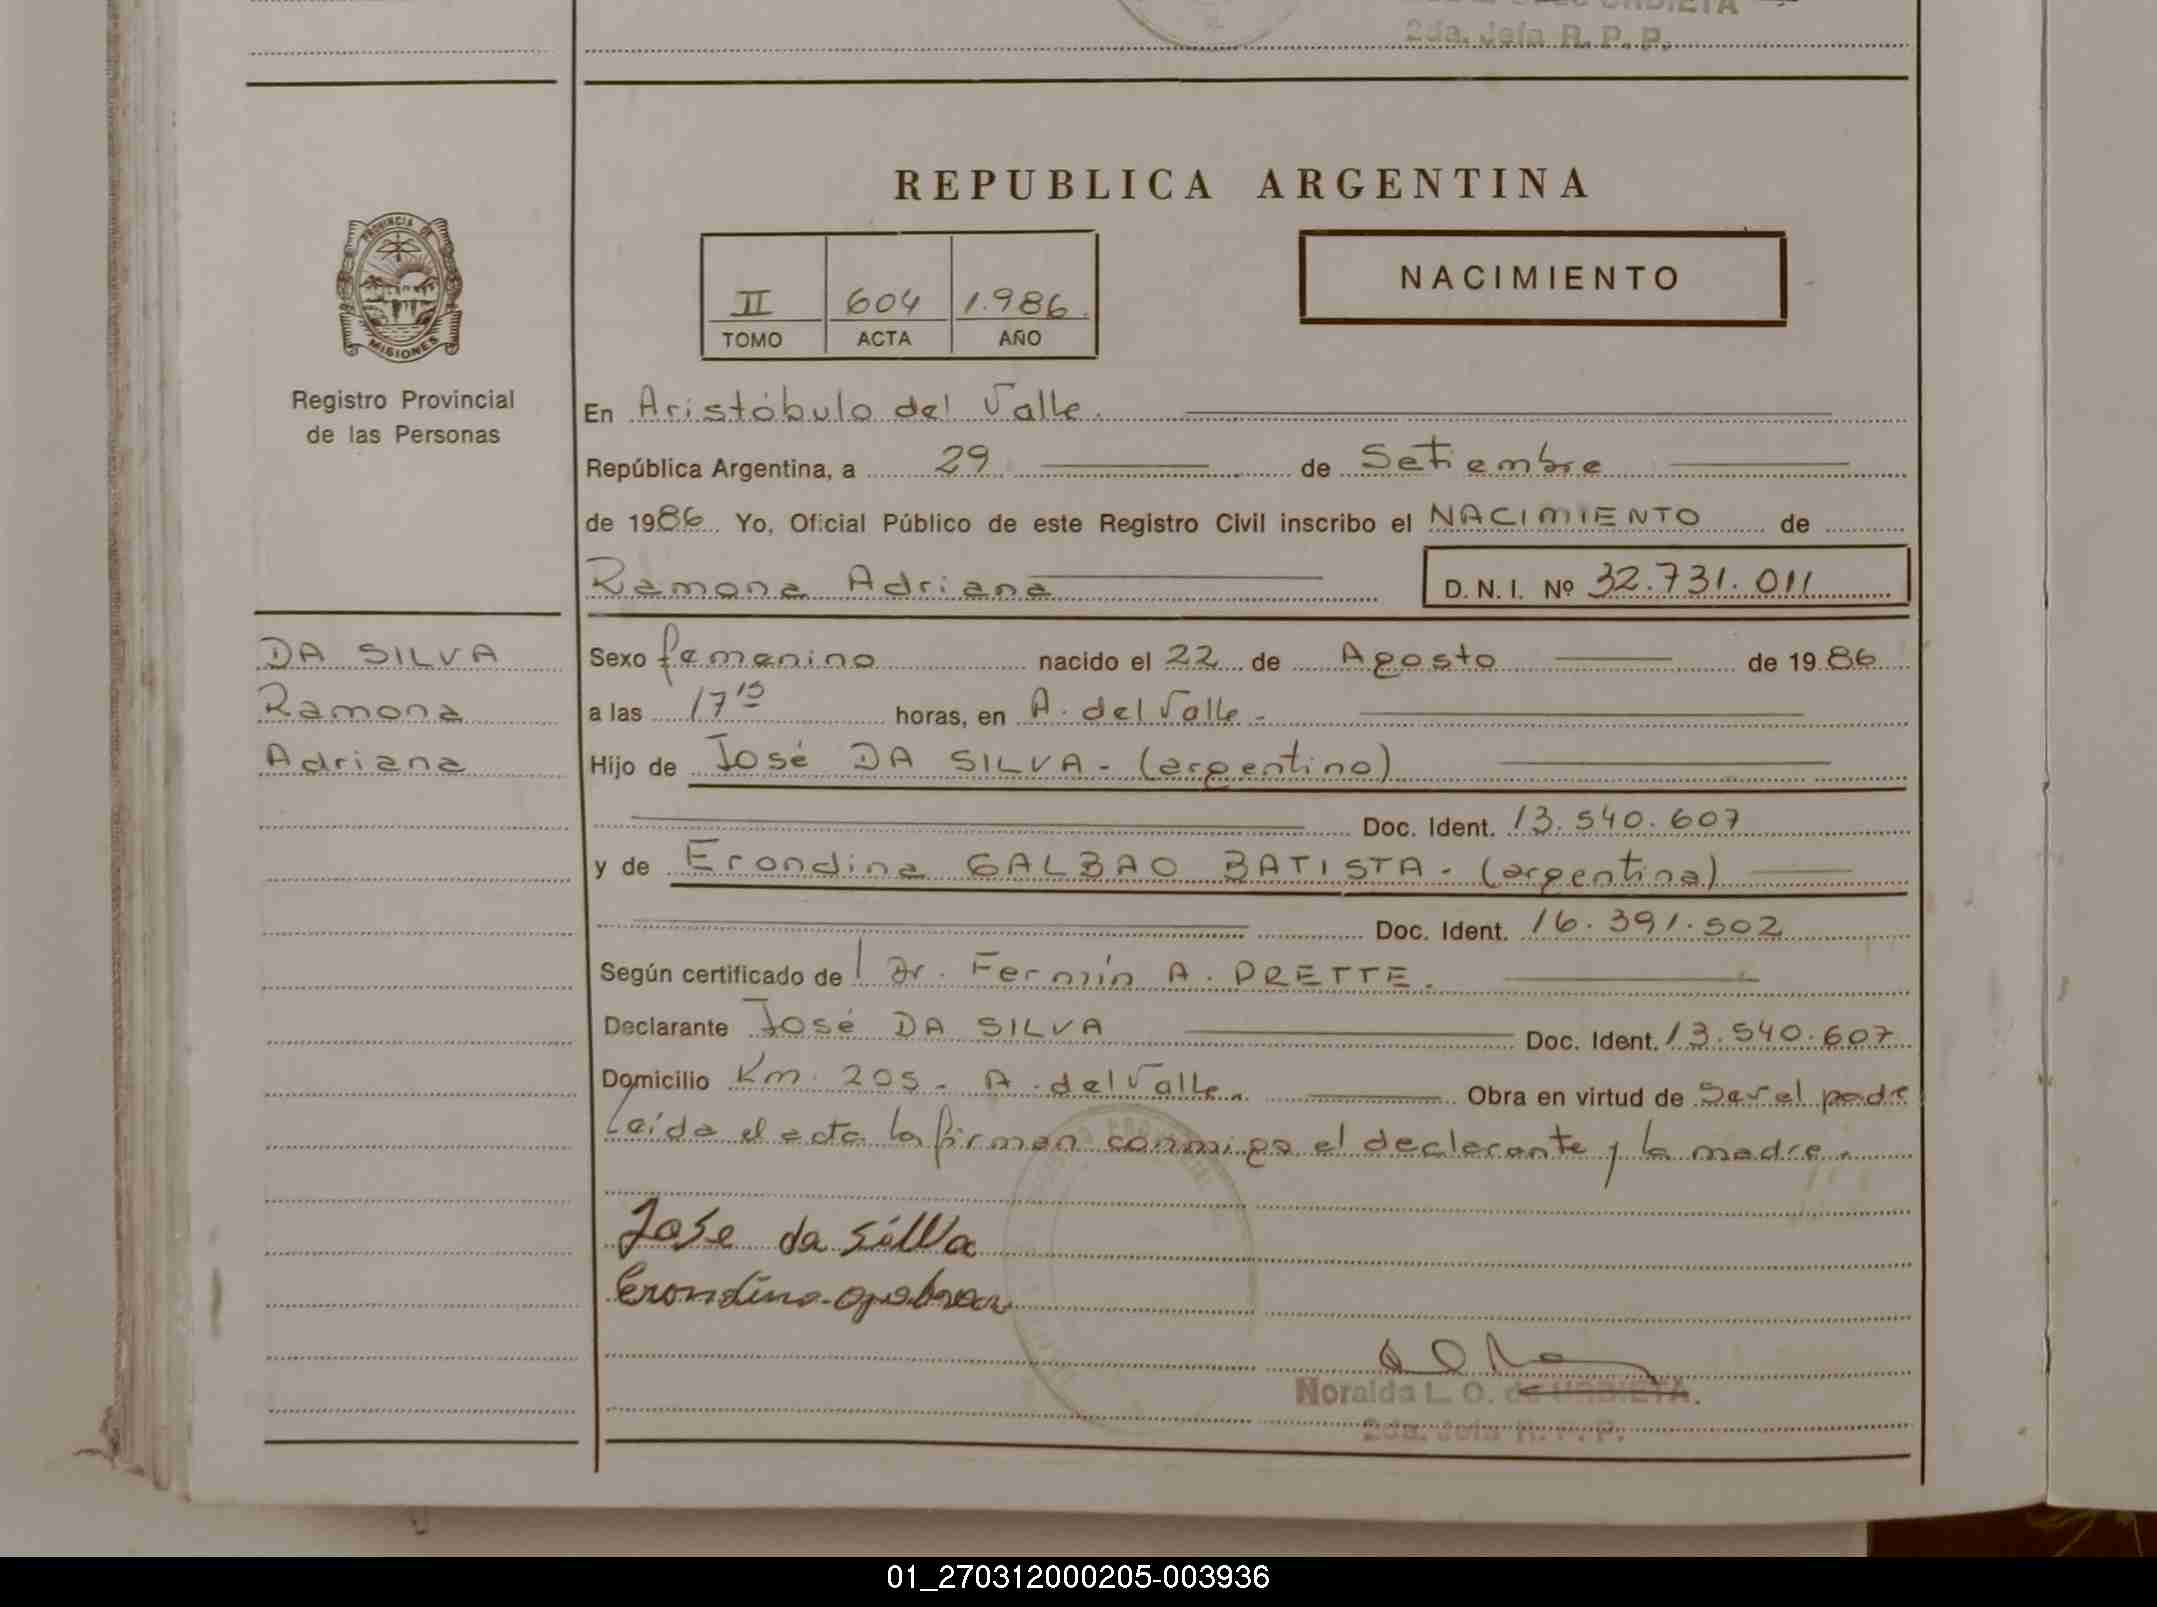 2da. Jefa R. P. P.
REPUBLICA ARGENTINA
PROVINCIA DE
MISIONES
Registro Provincial
de las Personas
II 604 1.986.
TOMO ACTA AÑO
NACIMIENTO
En Aristóbulo del Valle.
República Argentina, a 29 de Setiembre
de 1986 Yo, Oficial Público de este Registro Civil inscribo el NACIMIENTO de
Ramona Adriana D. N. I. Nº 32.731.011
DA SILVA
Ramona
Adriana
Sexo femenino nacido el 22 de Agosto de 1986
a las 17 15 horas, en A. del Valle -
Hijo de José DA SILVA - (argentino)
Doc. Ident. 13.540.607
y de Erondina GALBAO BATISTA - (argentina)
Doc. Ident. 16.391.502
Según certificado de Dr. Fermín A. PRETTE.
Declarante José DA SILVA Doc. Ident. 13.540.607
Domicilio Km. 205 - A. del Valle. Obra en virtud de Ser el padre
Leída el acta la firman conmigo el declarante y la madre.
Jose da Silva
Erondina
Noralda L. O. de URBIETA.
2da. Jefa R. P. P.
01_270312000205-003936